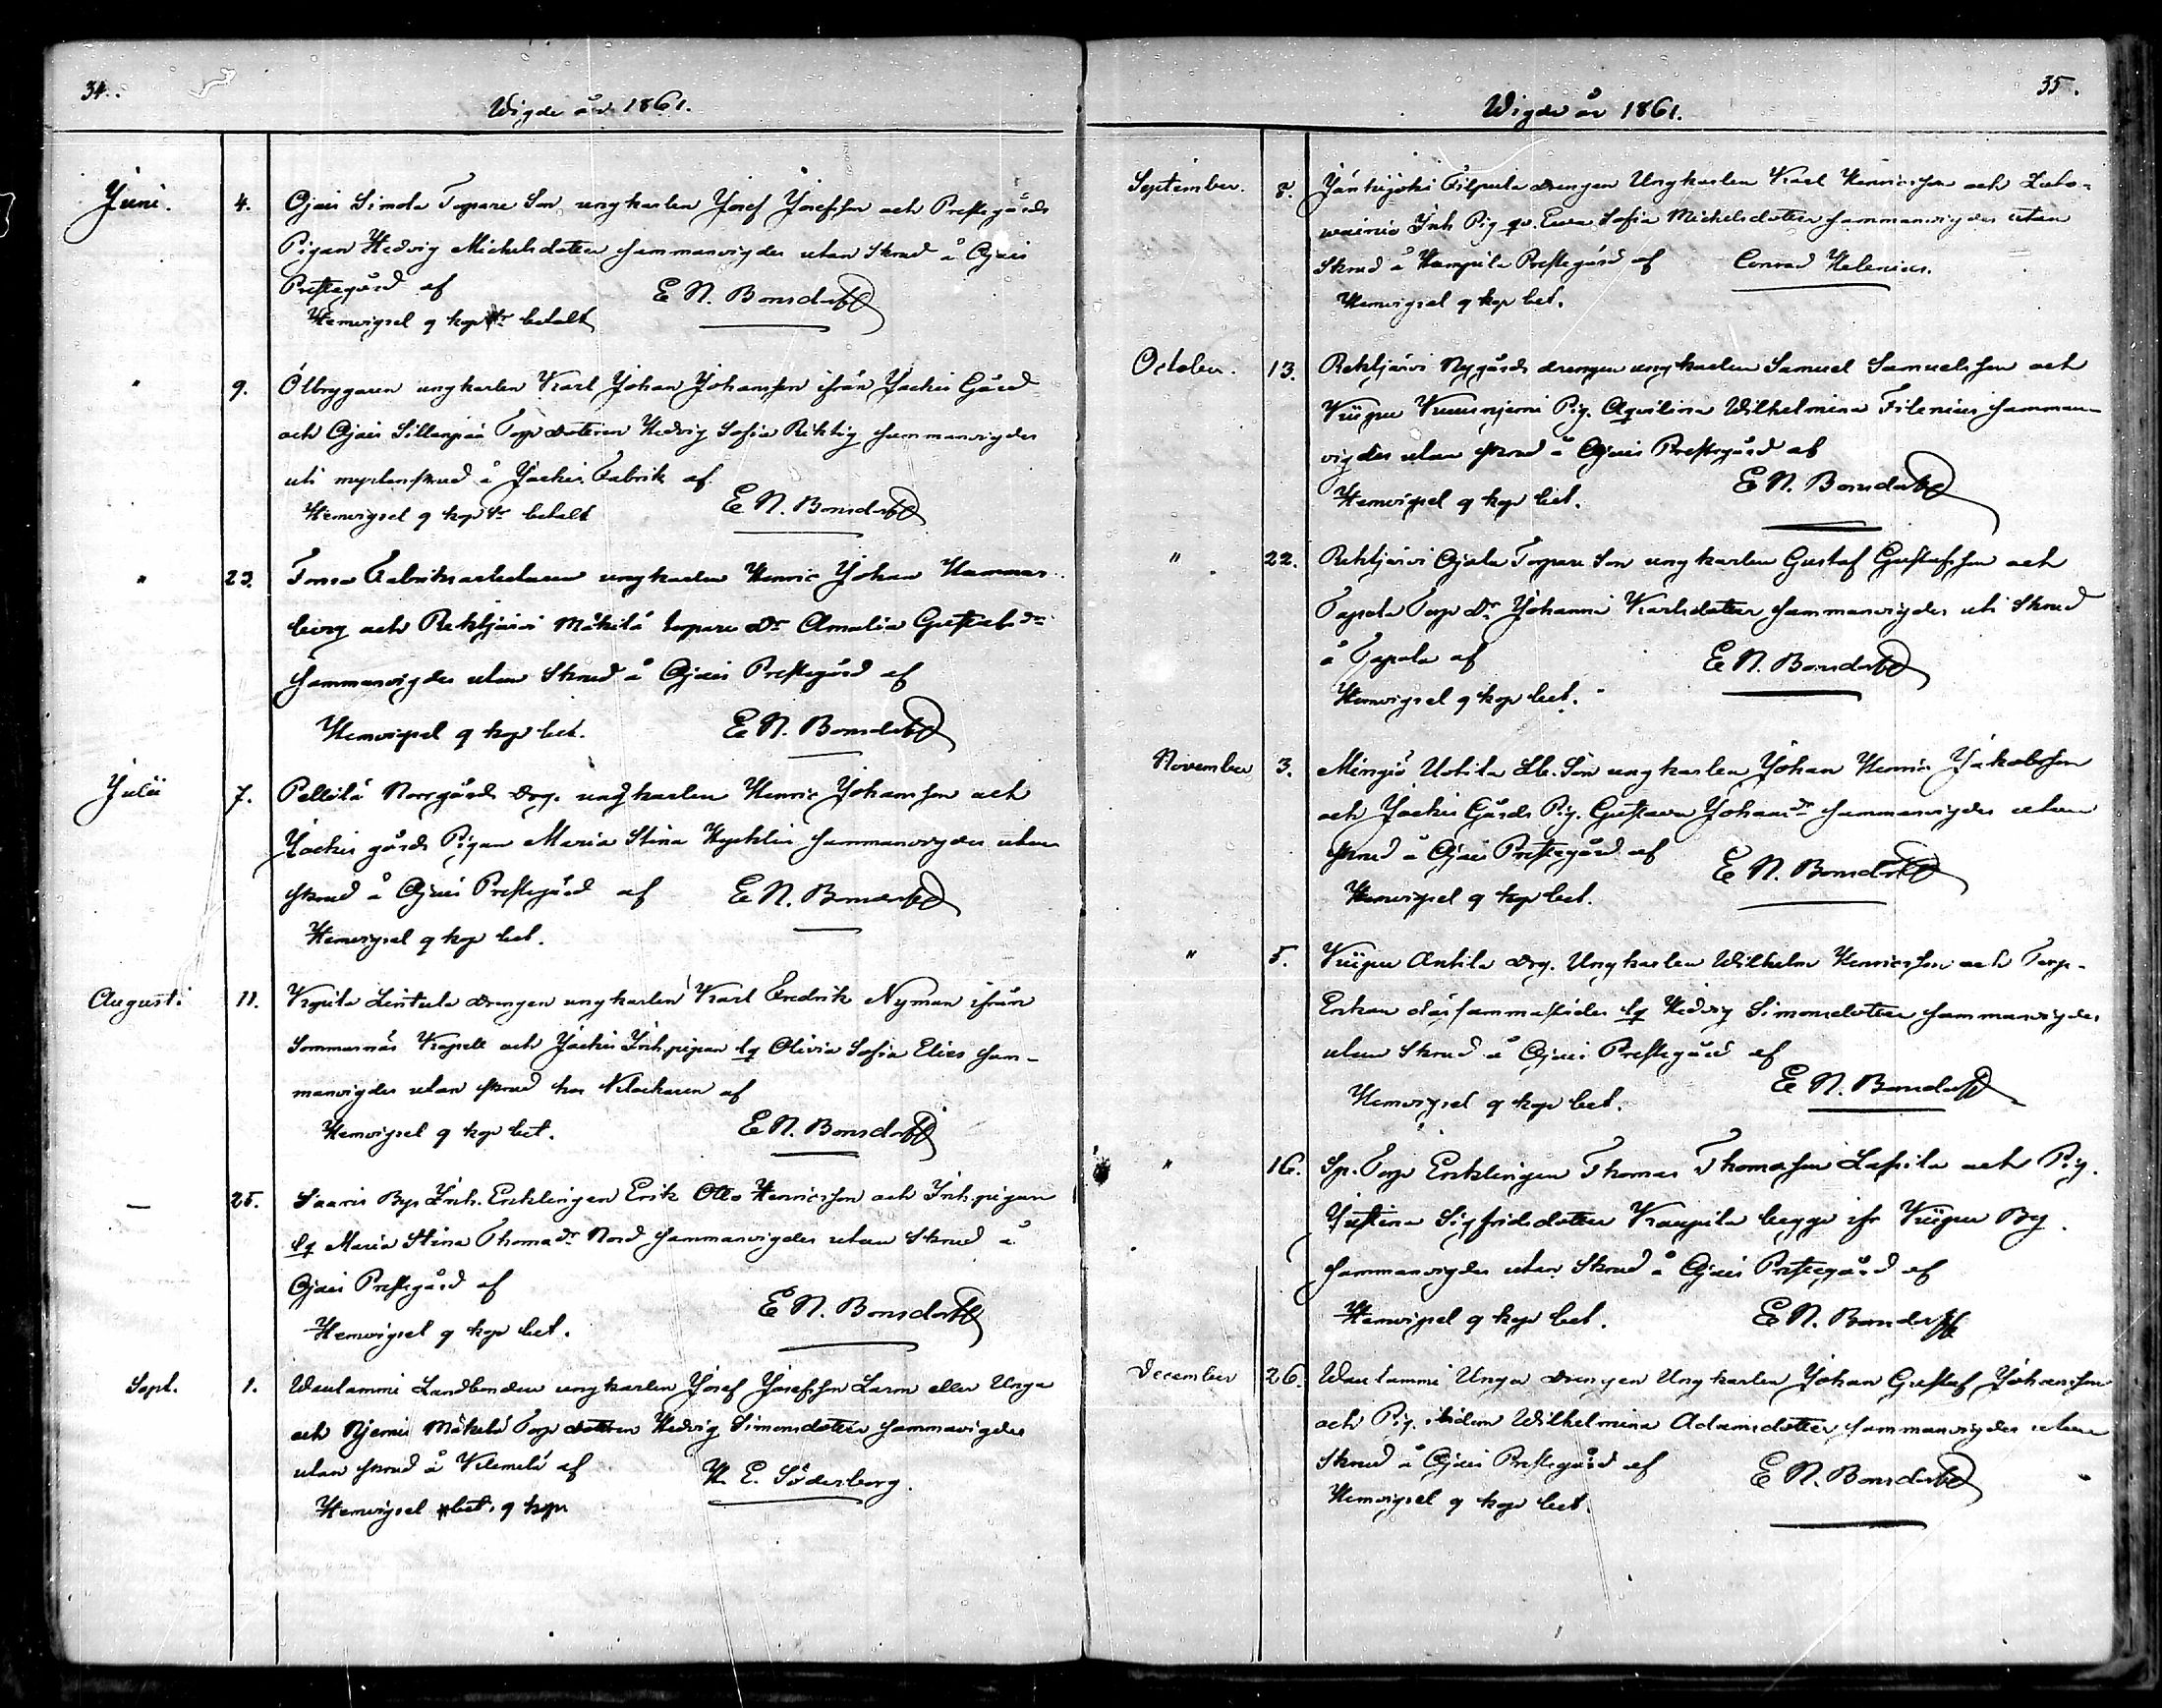 34.
Wigde år 1861.
Juni. 4. Ojais Simola Torpare Son ungkarlen Josef Josefsson och Prestegårds
Pigan Hedvig Michelsdotter sammanvigdes utan Skrud å Ojais
Prestegård af E N. Bonsdorff
Hemvigsel q kop betalt
" 9. Ölbryggaren ungkarlen Karl Johan Johansson ifrån Jockis Gård
och Ojais Sillanpää Torp dottern Hedvig Sofia Riktig sammanvigdes
uti myrtenskrud å Jockis Fabrik af
Hemvigsel q kop betalt E N. Bonsdorff
" 23. Forssa Fabriksarbetaren ungkarlen Henric Johan Hammar-
berg och Rehtijärvi Mäkilä torpare Dr Amalia Gustafsdr
sammanvigdes utan Skrud å Ojais Prestegård af
Hemvigsel q kop bet. E N. Bonsdorff
Julii 7. Pellilä Norrgårds drg. ungkarlen Henric Johansson och
Jockis gårds Pigan Maria Stina sammanvigdes utan
skrud å Ojais Prestegård af E N. Bonsdorff
Hemvigsel q kop bet.
Augusti 11. Lintula drengen ungkarlen Karl Fredrik Nyman ifrån
Sommarnäs Kapell och Jockis Inh. pigan lq Olivia Sofia sam-
manvigdes utan skrud hos Klockaren af
Hemvigsel q kop bet. E N. Bonsdorff
— 25. Saaris Bys Inh. Enklingen Erik Otto Henricsson och Inh. pigan
lq Maria Stina Thomadr Nord sammanvigdes utan Skrud å
Ojais Prestegård af
Hemvigsel q kop bet. E N. Bonsdorff
Sept. 1. Wautammi Landbonden ungkarlen Josef Josefsson Larm eller Unga
och Njemis Mäkelä Torp dottern Hedvig Simonsdotter sammanvigdes
utan skrud å Klemelä af K. E. Söderborg.
Hemvigsel bet. q kop
35.
Wigde år 1861.
September. 8. Jänhijoki Filpula drengen Ungkarlen Karl Henricsson och Lato-
wainio Inh Pig qv. Eva Sofia Michelsdotter sammanvigdes utan
Skrud å Humpila Prestegård af Conrad Helenius.
Hemvigsel q kop bet.
October. 13. Rehtijärvi Nygårds drengen ungkarlen Samuel Samuelsson och
Kiipu Kuusnjemi Pig. Aqvilina Wilhelmina Filenius samman-
vigdes utan skrud å Ojais Prestegård af
Hemvigsel q kop bet. E N. Bonsdorff
" 22. Rehtijärvi Ojala Torpare Son ungkarlen Gustaf Gustafsson och
Tapola Torp Dr Johanna Karlsdotter sammanvigdes uti Skrud
å Tapola af E N. Bonsdorff
Hemvigsel q kop bet.
November 3. Mingiö Uotila Lb. Son ungkarlen Johan Henric Jakobsson
och Jockis Gårds Pig. Gustava Johansdr sammanvigdes utan
skrud å Ojais Prestegård af E N. Bonsdorff
Hemvigsel q kop bet.
" 5. Kiipu Antila drg. Ungkarlen Wilhelm Henricsson och Torp-
Enkan därsammastädes lq Hedvig Simonsdotter sammanvigdes
utan Skrud å Ojais Prestegård af
Hemvigsel q kop bet. E N. Bonsdorff
" 16. Sp. Torp Enklingen Thomas Thomasson Lassila och Pig.
Justina Sigfridsdotter Kaupila begge ifr Kiipu By.
sammanvigdes utan Skrud å Ojais Prestegård af
Hemvigsel q kop bet. E N. Bonsdorff
December 26. Wautammi Unga drengen Ungkarlen Johan Gustaf Johansson
och Pig. ibidem Wilhelmina Adamsdotter sammanvigdes utan
Skrud å Ojais Prestegård af E N. Bonsdorff
Hemvigsel q kop bet.